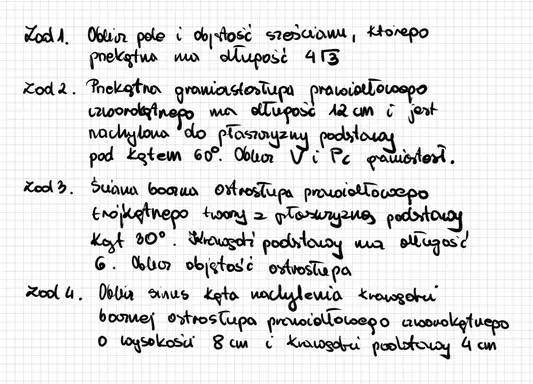 Zad 1. Oblicz pole i objętość sześcianu, którego
przekątna ma długość 4√3
Zad 2. Przekątna graniastosłupa prawidłowego
czworokątnego ma długość 12 cm i jest
nachylona do płaszczyzny podstawy
pod kątem 60°. Oblicz V i Pc graniastosł.
Zad 3. Ściana boczna ostrosłupa prawidłowego
trójkątnego tworzy z płaszczyzną podstawy
kąt 30°. Krawędź podstawy ma długość
6. Oblicz objętość ostrosłupa
Zad 4. Oblicz sinus kąta nachylenia krawędzi
bocznej ostrosłupa prawidłowego czworokątnego
o wysokości 8 cm i krawędzi podstawy 4 cm